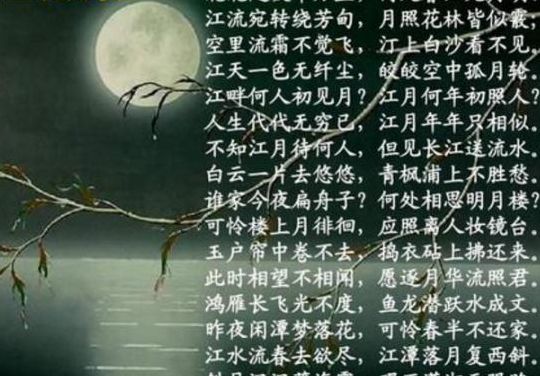 江流宛转绕芳甸，月照花林皆似霰；
空里流霜不觉飞，汀上白沙看不见。
江天一色无纤尘，皎皎空中孤月轮。
江畔何人初见月？江月何年初照人？
人生代代无穷已，江月年年只相似。
不知江月待何人，但见长江送流水。
白云一片去悠悠，青枫浦上不胜愁。
谁家今夜扁舟子？何处相思明月楼？
可怜楼上月徘徊，应照离人妆镜台。
玉户帘中卷不去，捣衣砧上拂还来。
此时相望不相闻，愿逐月华流照君。
鸿雁长飞光不度，鱼龙潜跃水成文。
昨夜闲潭梦落花，可怜春半不还家。
江水流春去欲尽，江潭落月复西斜。